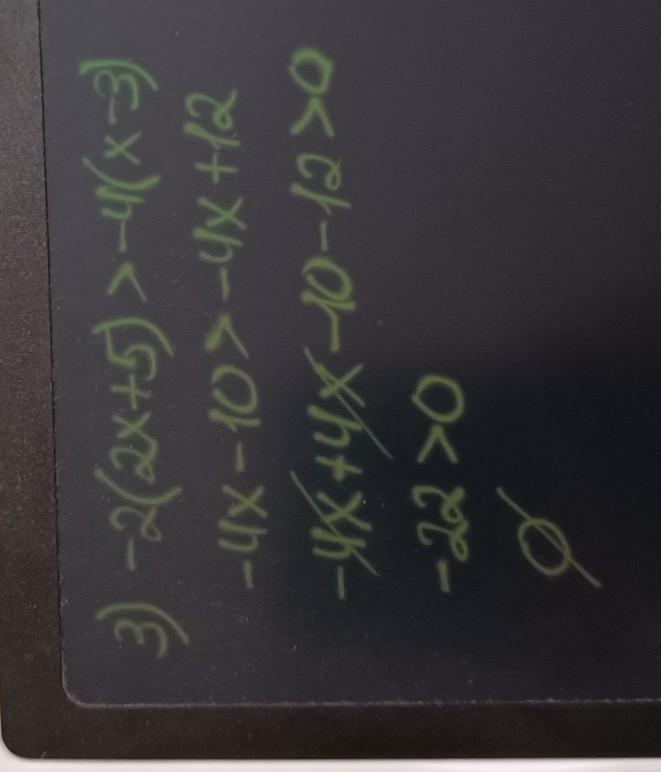 3) -2(2x+5) > -4(x-3)
-4x-10 > -4x+12
-4x+4x-10-12 >0
-22 >0
∅